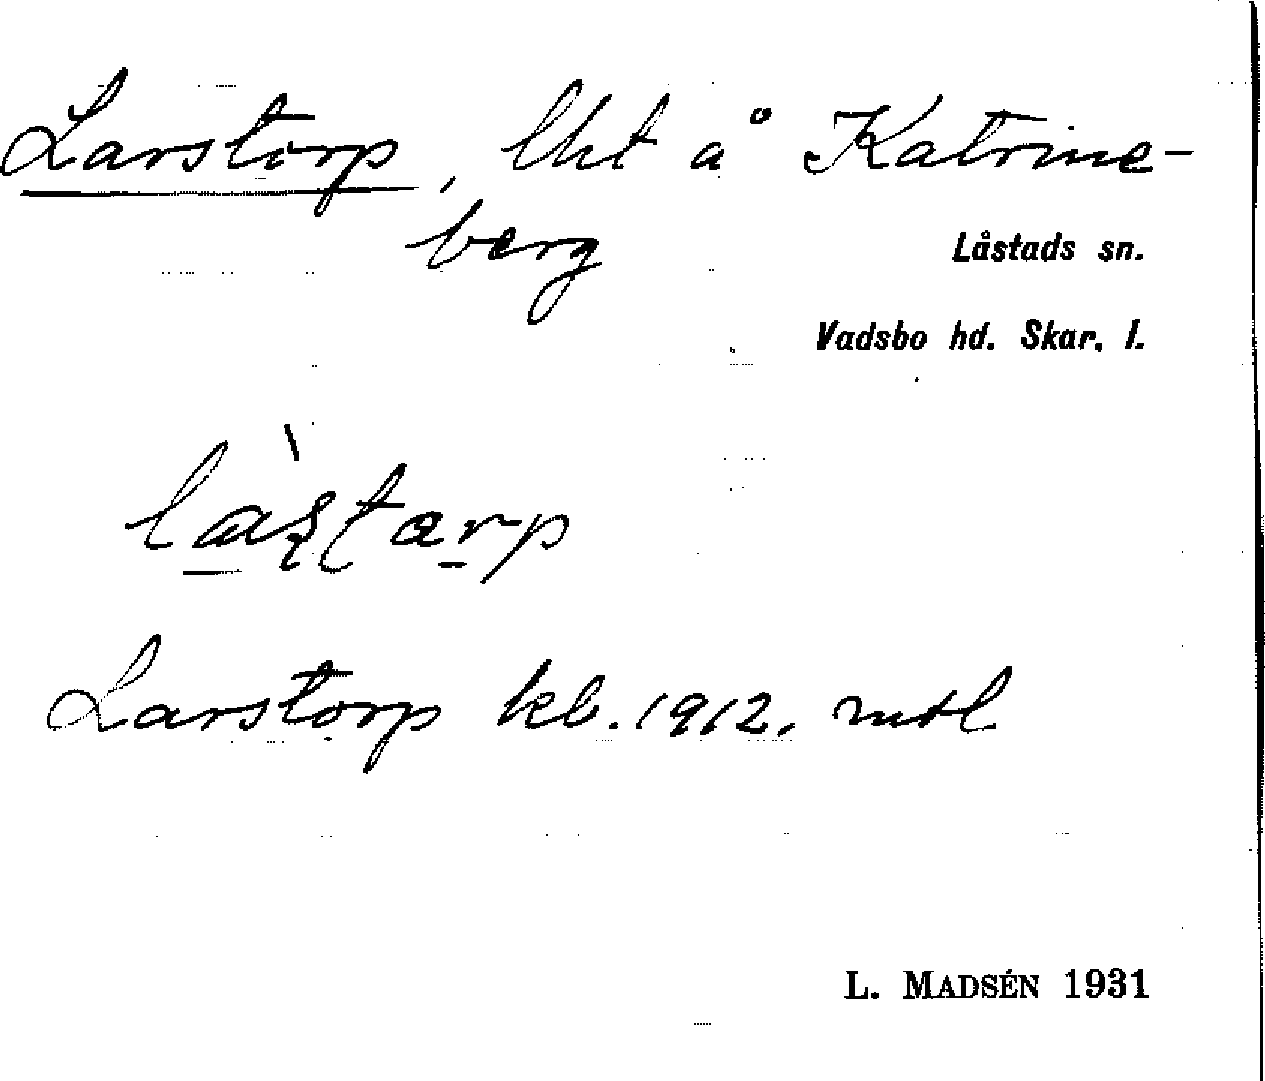 Larstorp, lht å Katrine-
berg
Låstads sn.
Vadsbo hd. Skar. l.
làstarp
Larstorp kb. 1912, mtl
L. MADSÉN 1931